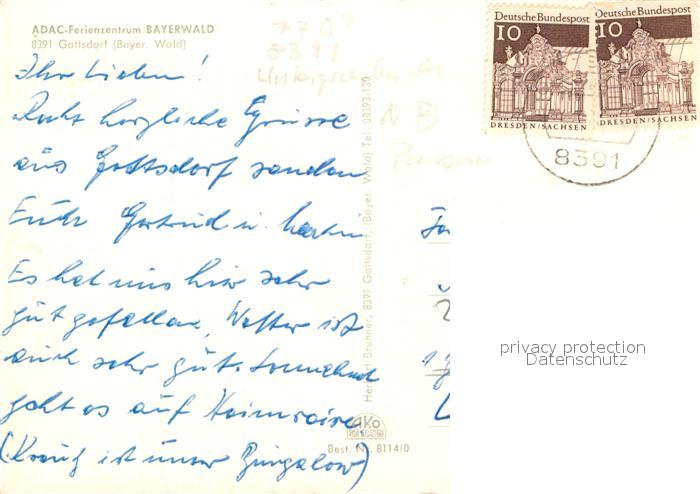 ADAC-Ferienzentrum BAYERWALD
8391 Gottsdorf (Bayer. Wald)
8391
NB
Passau
Ihr Lieben!
Recht herzliche Grüsse
aus Gottsdorf senden
Euch Gertrud u. Martin
Es hat uns hier sehr
gut gefallen, Wetter ist
auch sehr gut. Sonnabend
geht es auf Heimreise.
(Kreuz ist unser Bungalow)
Brunner, 8391 Gottsdorf, (Bayer. Wald) Tel. 08593-139
AKo
Best. Nr. 8114/0
Deutsche Bundespost
10
DRESDEN/SACHSEN
Deutsche Bundespost
10
DRESDEN/SACHSEN
8391
privacy protection
Datenschutz